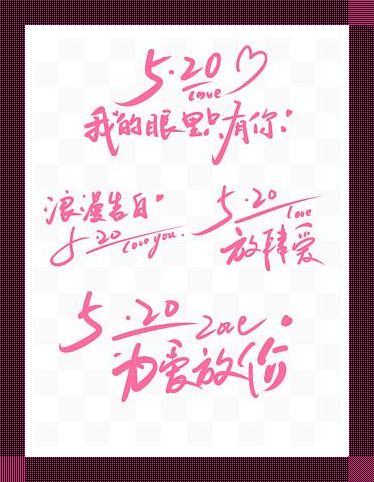 5·20
love
我的眼里只有你
浪漫告白
5·20
love you.
5·20
love
放肆爱
5·20
love
为爱放价